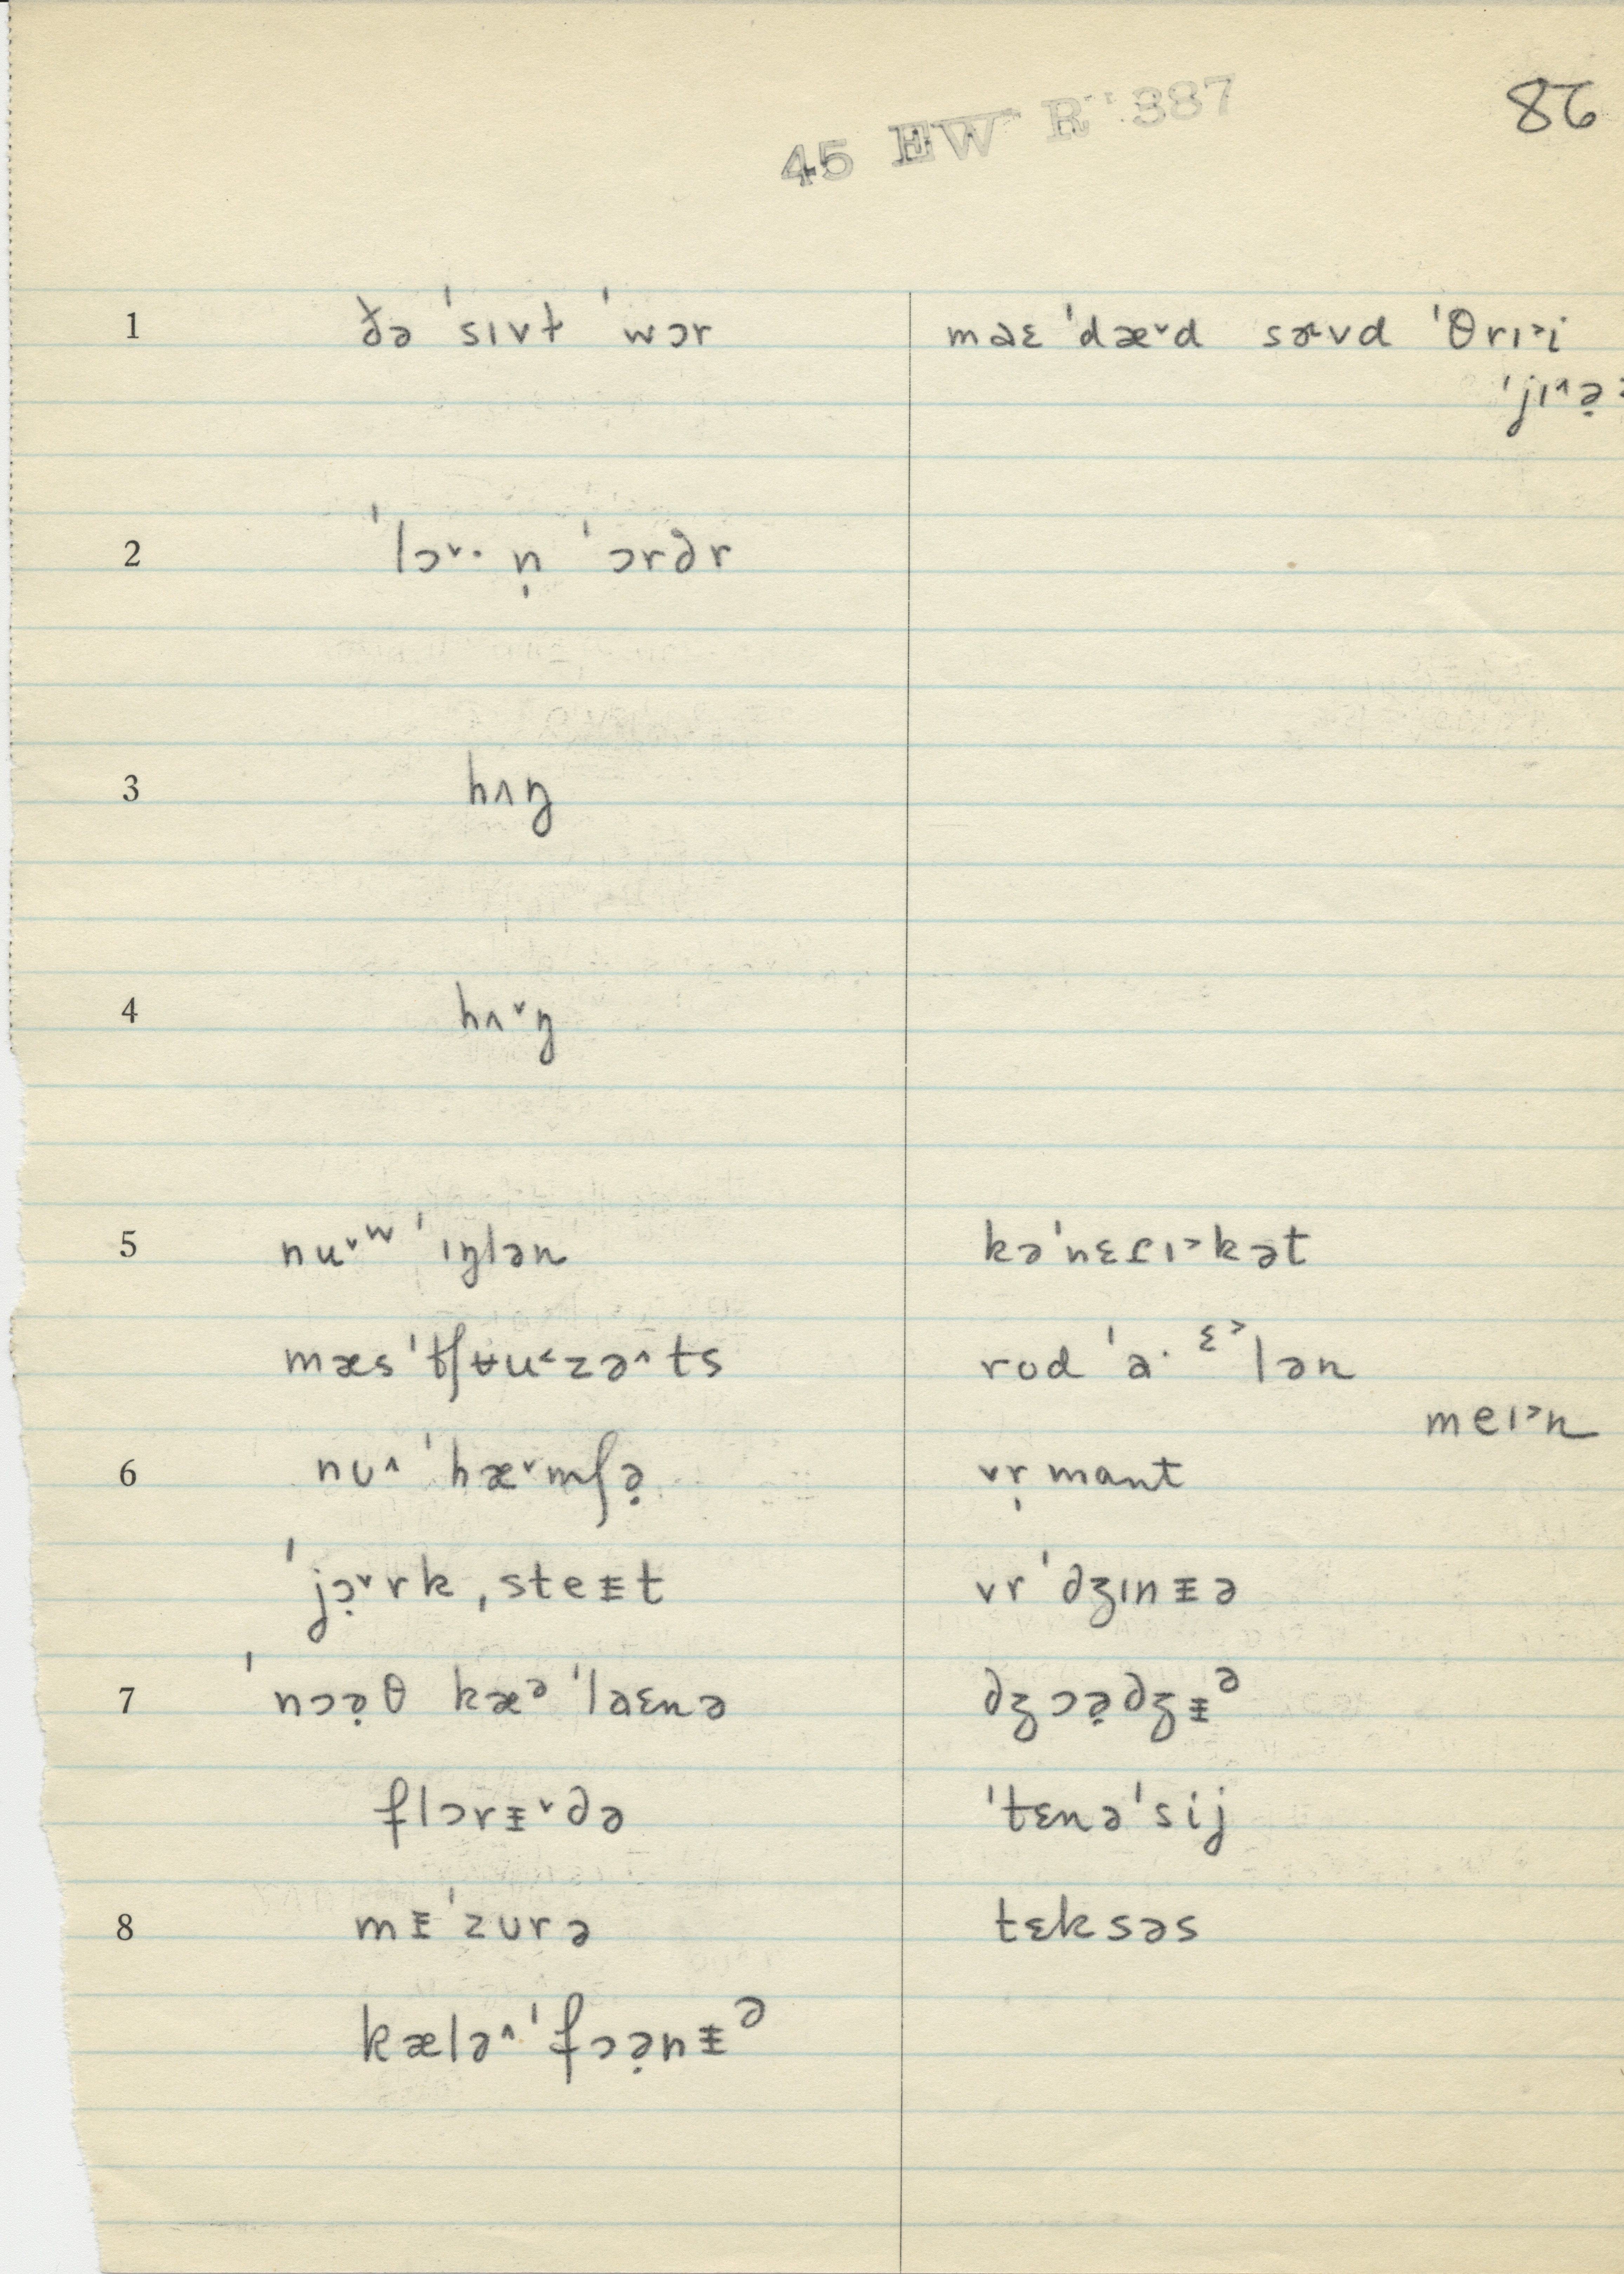 45 EW R 387
86
1 ðə ˈsɪvɫ ˈwɔr
maɛ ˈdæ˅d sɚvd ˈθrɪ˃i
ˈjɪ˄ə̣
2 ˈlɔ˅· n̩ ˈɔrdr
3 hʌŋ
4 hʌ˅ŋ
5 nu˅ʷ ˈɪŋlən
kəˈnɛɾɪ˃kət
mæsˈtʃʉu˂zə˄ts
rod ˈa· ᵋ˃lən
meɪ˃n
6 nʊ˄ ˈhæ˅mʃə̣
vṛmant
ˈjɔ̣˅rk ˌsteᵻt
vrˈdʒɪnᵻə
7 ˈnɔə̣θ kæᵊˈlaɛnə
dʒɔə̣dʒᵻᵊ
flɔrᵻ˅də
ˈtɛnəˈsij
8 mᵻˈzʊrə
tɛksəs
kælə˄ˈfɔə̣nᵻᵊ